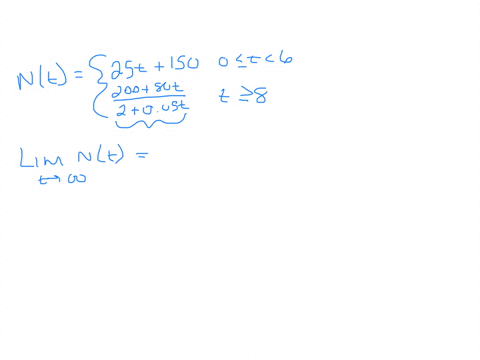 N(t) = { 25t + 150 0 ≤ t < 6
200 + 80t / 2 + 0.05t t ≥ 8
Lim N(t) =
t → ∞